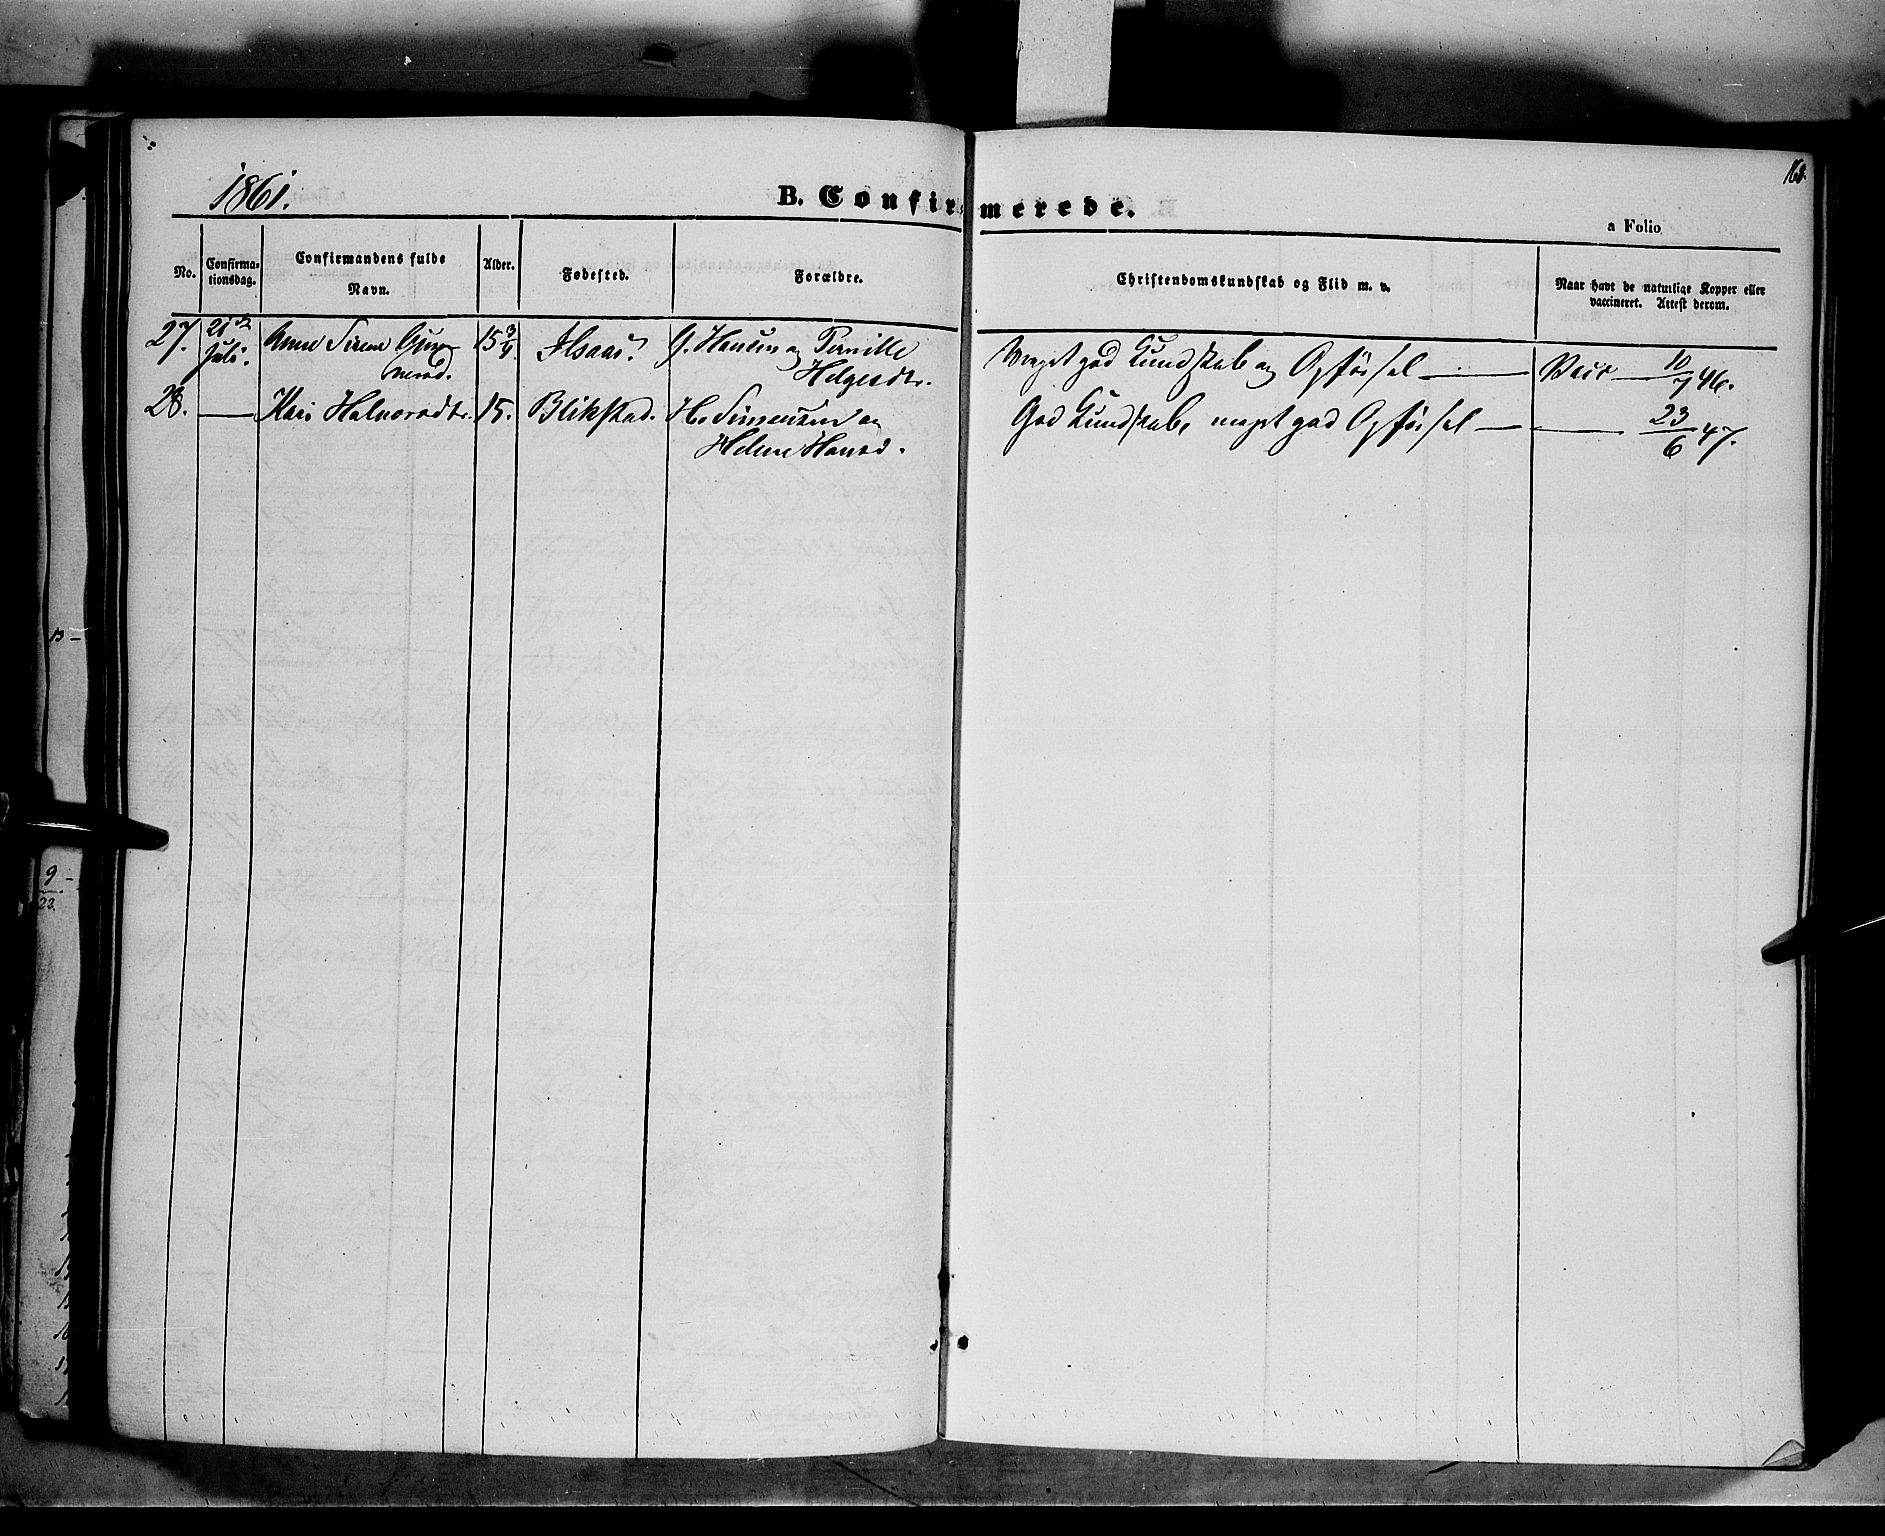 1861.
B. Confirmerede.
168.
a Folio
No.
Confirma-
tionsdag.
Confirmandens fulde
Navn.
Alder.
Fødested.
Forældre.
Christendomskundskab og Flid m. v.
Naar havt de naturlige Kopper eller
vaccineret. Attest derom.
27. 21de Juli. Anne Sirene Gun-
nersd. 15 3/4 G. Hansen og Pernille
Helgesdtr. Meget god Kundskab og Opførsel — Vacc — 10/7 46.
28. — Kari Halvorsdtr. 15. Blikstad. H. Simensen og
Helene Hansd. God Kundskab, meget god Opførsel — — 23/6 47.
13 -
9 -
22.